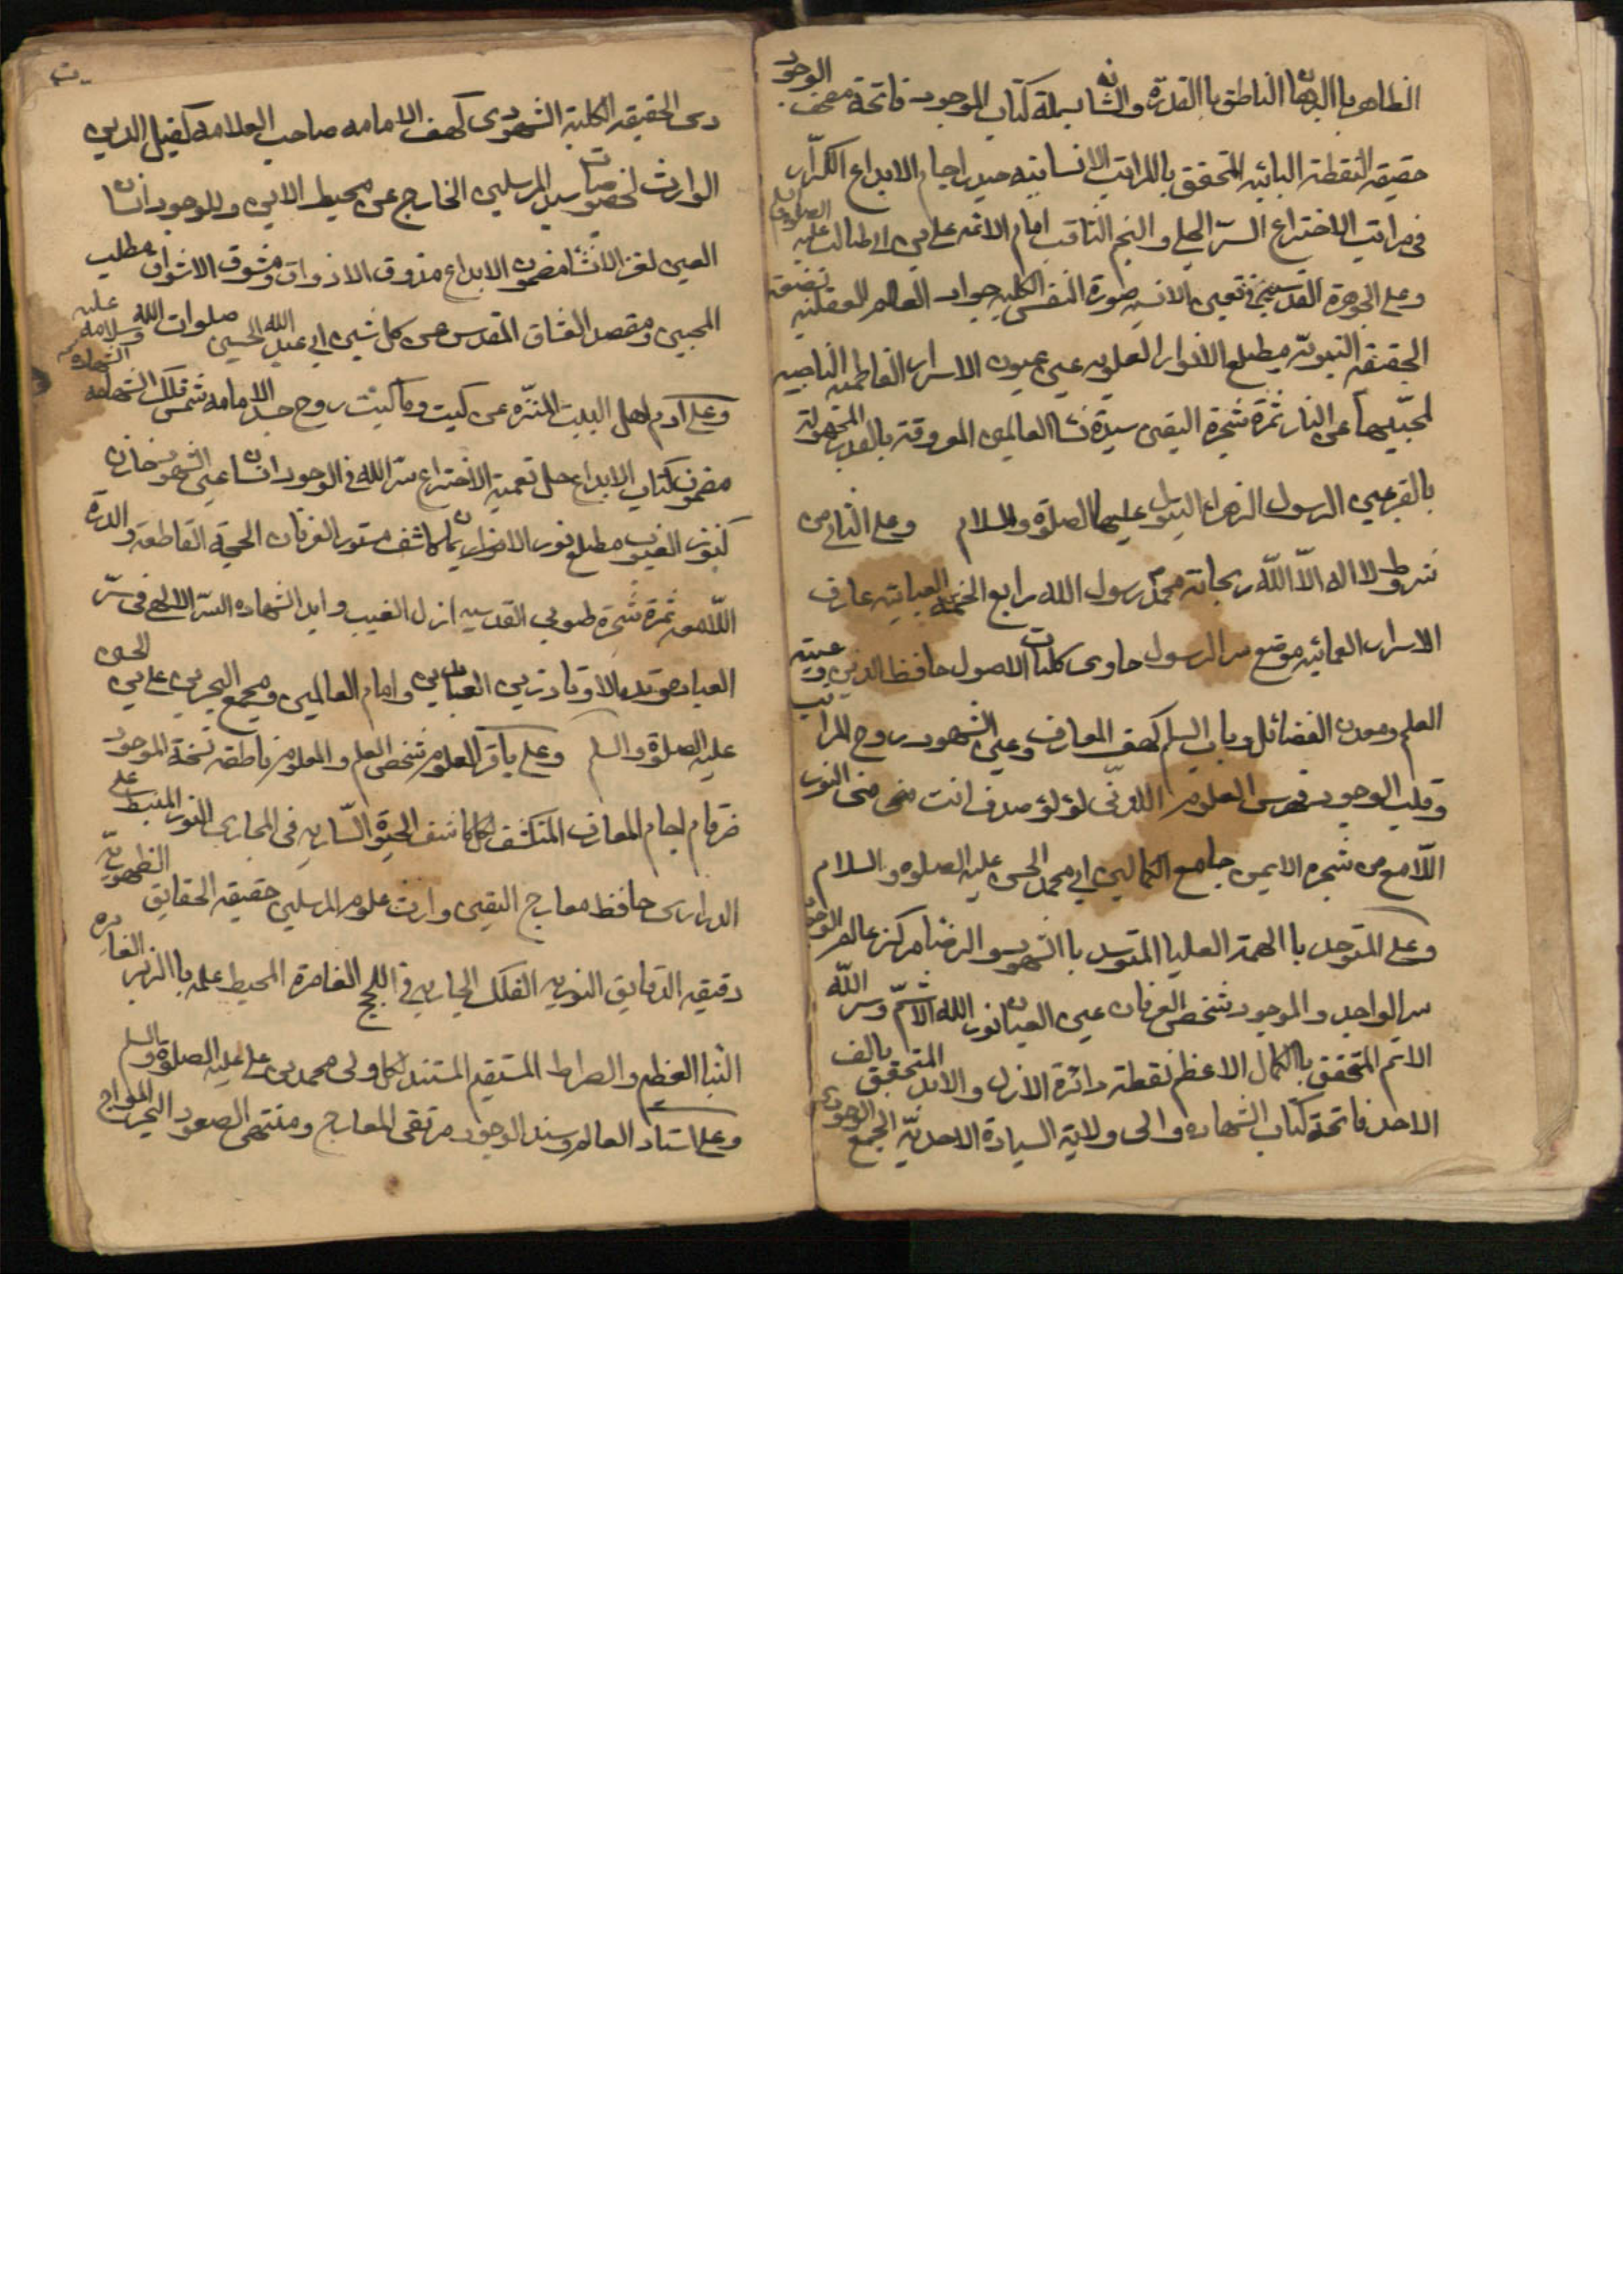 الظاهر باالبرهان الناطق باالقدرة والشانه بسملة كتاب الموجود فاتحة مصحف الوجود
حقيقه النقطة البائيه المتحقق باالمراتب الانسانيه حيدر اجام الابداع الكرّار
فى مراتب الاختراع السرّ الجلى والنجم الثاقب امام الائمه على بن ابى طالب عليه الصلوة
وعلى الجوهرة القدسيه فى تعين الانسيه صورة النفس الكليه جواد العالم العقليه بضعة
الحقيقه النبويّه مطلع الانوار العلويه عين عيون الاسرار الفاطميه الناجيه
لمحبّيها عن النار ثمرة شجرة اليقين سيدة نساء العالمين المعروفة بالقدر المجهولة
بالقبر عين الرسول الزهراء البتول عليها الصلوة والسلام وعلى الثانى من
شروط لا اله الّا اللّه ريحانة محمّد رسول الله رابع الخمسه العبائيه عارف
الاسرار العمائيه موضع سر الرسول حاوى كليات الاصول حافظ الدين وعيبة
العلم ومعدن الفضائل وباب السلم كهف المعارف وعين الشهود روح المراتب
وقلب الوجود فهرس العلوم اللدنّى لؤلؤ صدف انت منى النور
اللّامع من شجره الايمن جامع الكمالين ابى محمد الحسن عليه الصلوه والسلام
وعلى المتوحد باالهمة العليا المتوسد باالشهود والرضا مركز عالم الوجود
سر الواجد والموجود شخص العرفان عين العيان نور الله الاتمّ وسر اللّه
الاتم المتحقق باالكمال الاعظم نقطة دائرة الازل والابد المتحقق بالف
الاحد فاتحة كتاب الشهاده والى ولاية السيادة الاحديّه الجمع الوجودى
دى الحقيقه الكلية الشهودى كهف الامامه صاحب العلامه كفيل الدين
الوارث لخصوصيات سيد المرسلين الخارج عن محيط الاين والوجود انسان
العين لغز الانشا مضمون الابداع مذوق الاذواق ومشوق الاشواق مطلب
المحبين ومقصد العشاق المقدس عن كل شين ابى عبد الله الحسين صلوات الله وسلامه عليه
وعلى آدم اهل البيت المنزّه عن كيت وما كيت روح جسد الامامه شمس فلك الشهامه
مضمون كتاب الابداع حل تعمية الاختراع سرّ الله فى الوجود انسان عين الشهود خازن
كنوز الغيوب مطلع نور الايمان كاشف مستور العرفان الحجة القاطعه والدرّة
اللّامعه ثمرة شجرة طوبى القدسيه ازل الغيب وابد الشهاده السرّ الالهى فى سرّ
العباد وتد الاوتاد زين العابدين وامام العالمين ومجمع البحرين على بن الحسين
عليه الصلوة والسلم وعلى باقر العلوم شخص العلم والمعلوم ناطقه نسخة الموجود
ضرغام اجام المعارف المنكشف لكل كاشف الحيوة السّاريه فى المجارى النور المنبسط على
الدرارى حافظ معارج اليقين وارث علوم المرسلين حقيقه الحقايق الظهوريّه
دقيقه الدقايق النوريه الفلك الجاريه فى اللجج الغامرة المحيط علمه باالزبر الغابره
النبا العظيم والصراط المستقيم المستند لكل ولى محمد بن على عليه الصلوة والسلم
وعلى استاد العالم وسند الوجود مرتقى المعارج ومنتهى الصعود البحر المواج